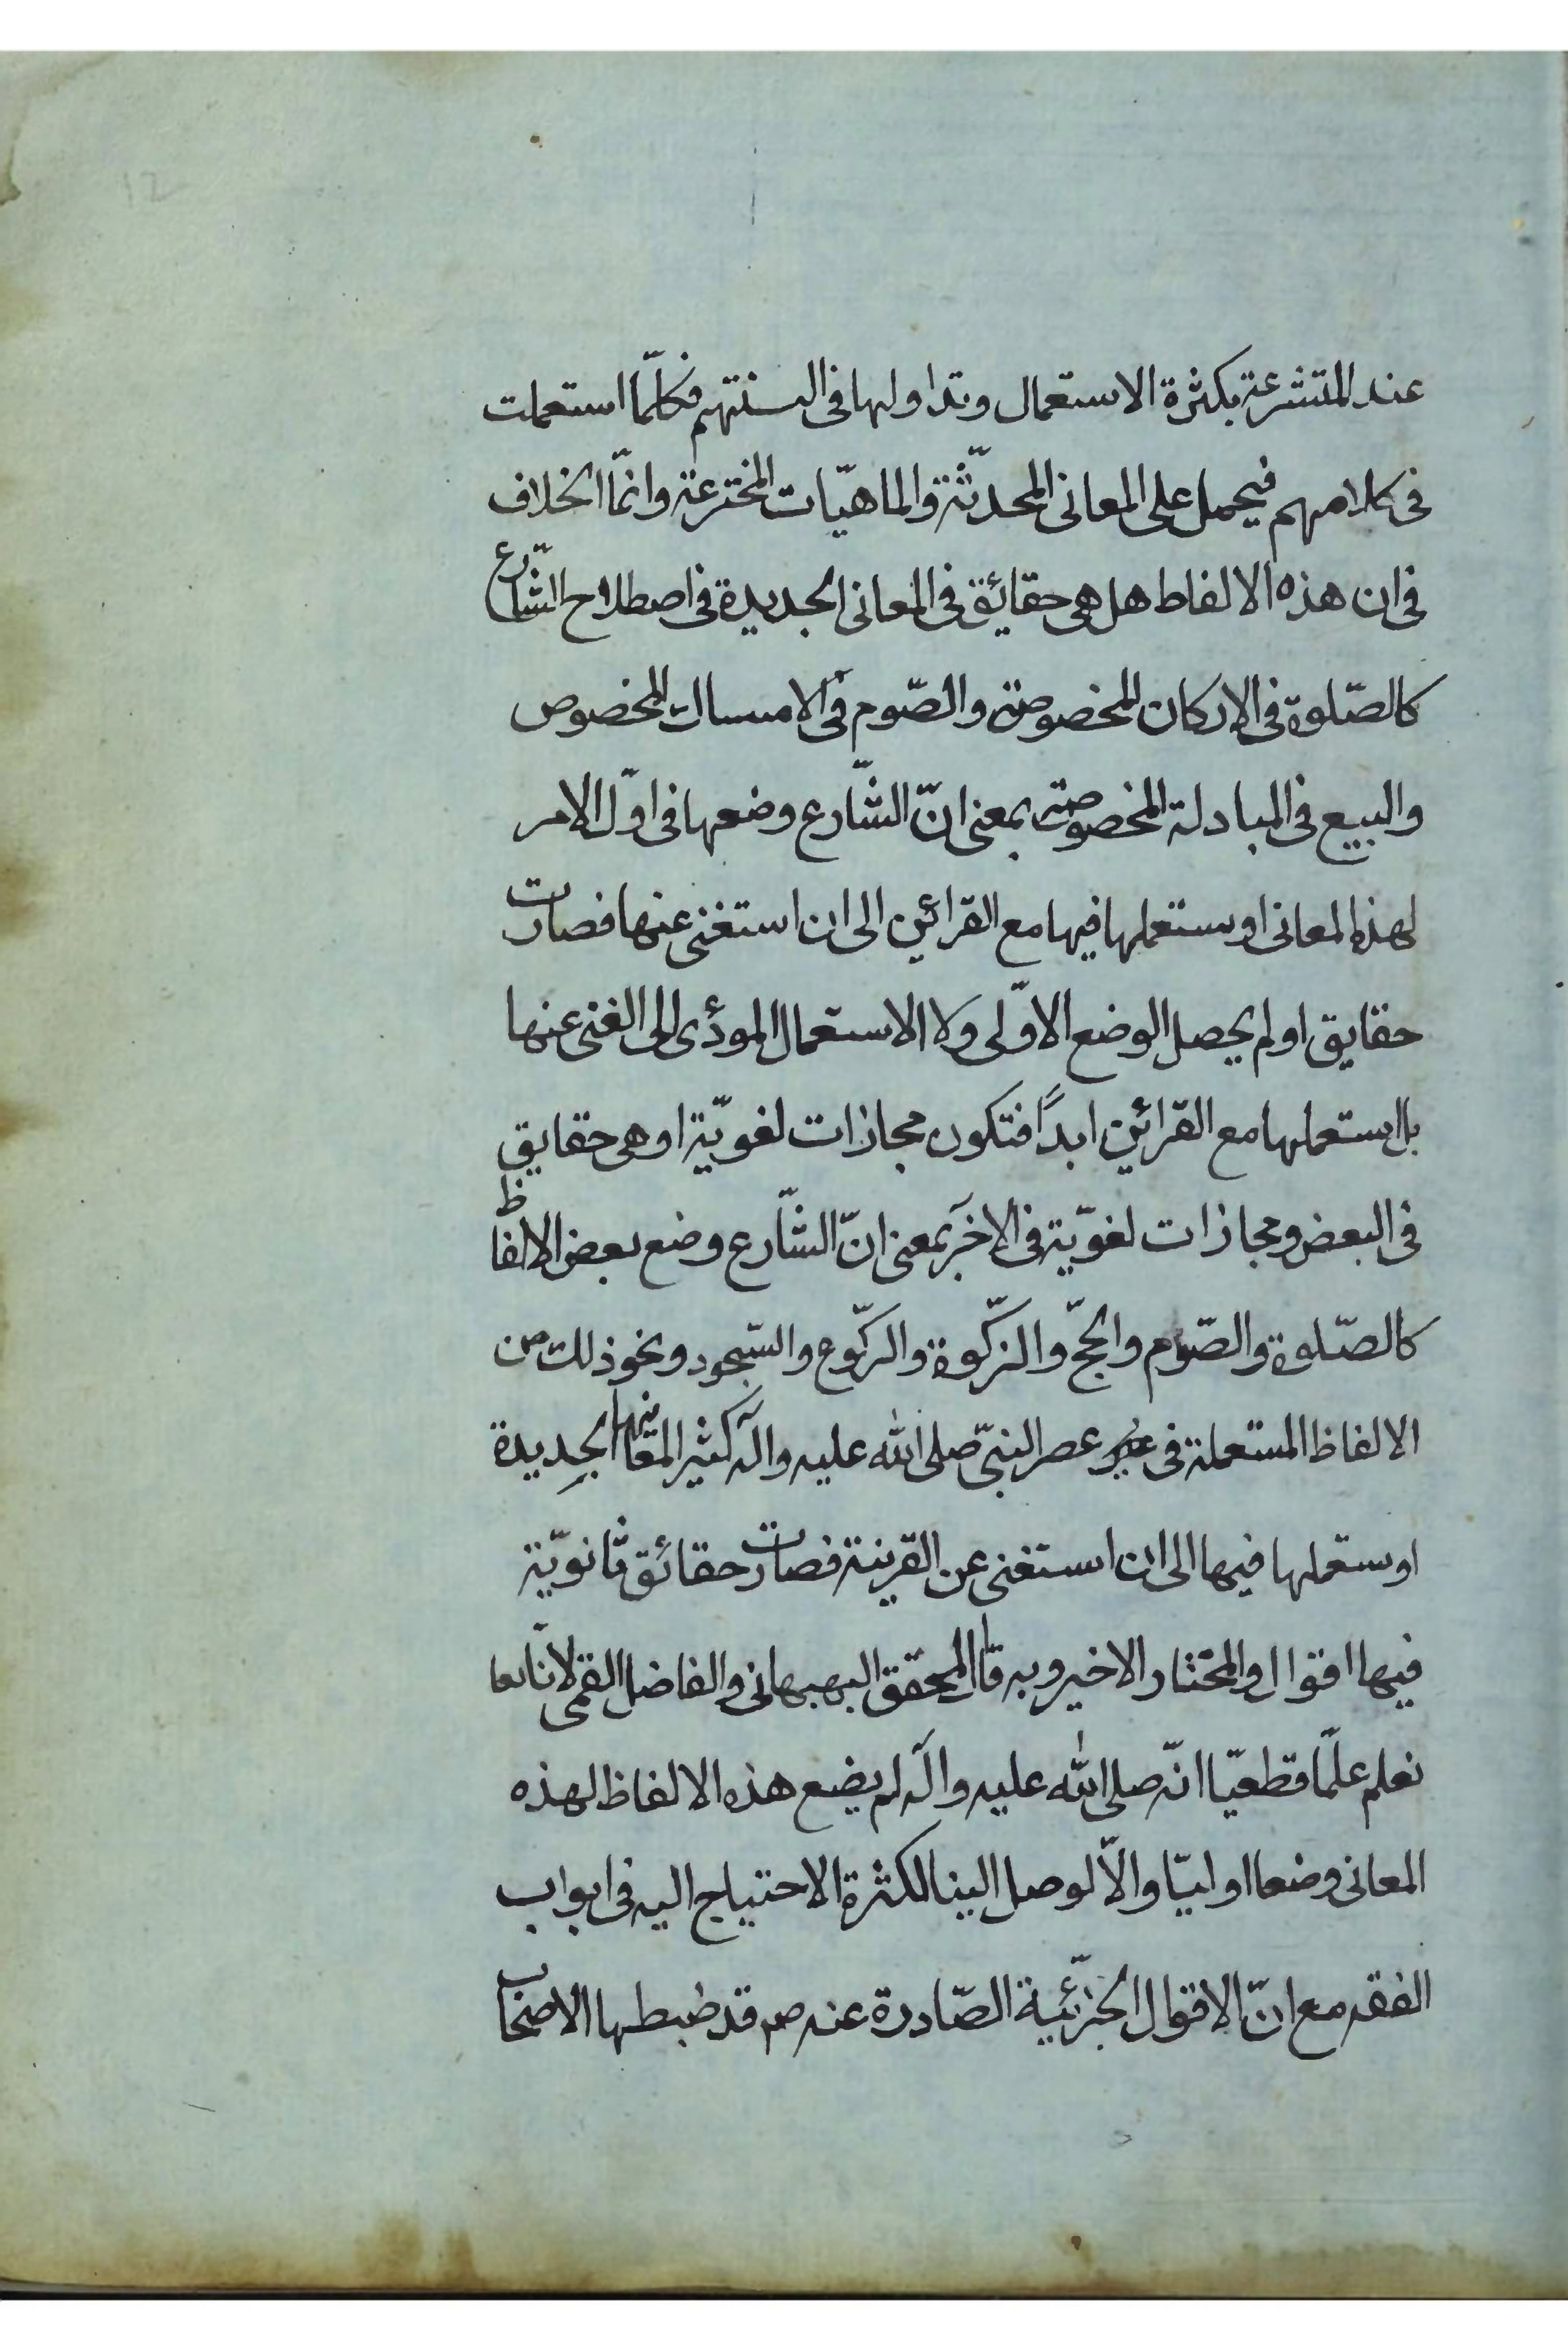 12
عند المتشرعة بكثرة الاستعمال وتداولها فى السنتهم فكلّما استعملت
فى كلامهم فيحمل على المعانى المحدّثة والماهيّات المخترعة وانمّا الخلاف
فى ان هذه الالفاظ هل هى حقائق فى المعانى الجديدة فى اصطلاح الشّارع
كالصّلوة فى الاركان المخصوصة والصّوم فى الامساك المخصوص
والبيع فى المبادلة المخصوصة بمعنى انّ الشّارع وضعها فى اوّل الامر
لهذه المعانى او ستعملها فيها مع القرائن الى ان استغنى عنها فصارت
حقايق او لم يحصل الوضع الاوّلى ولا الاستعمال المودّى الى الغنى عنها
بل استعملها مع القرائن ابداً فتكون مجازات لغويّة او هى حقايق
فى البعض ومجازات لغويّة فى الاخر بمعنى انّ الشّارع وضع بعض الالفاظ
كالصّلوة والصّوم والحجّ والزّكوة والركّوع والسّجود ونحو ذلك من
الالفاظ المستعملة فى عصر النبىّ صلى الله عليه وآله كثير المعانيها الجديدة
او ستعملها فيها الى ان استغنى عن القرينة فصارت حقائق ثانويّة
فيها اقوال والمختار الاخير وبه قال المحقق البهبهانى والفاضل القمى لانّا
نعلم علمّا قطعيّا انّه صلى الله عليه وآله لم يضع هذه الالفاظ لهذه
المعانى وضعا اوليّا والاّ لوصل الينا لكثرة الاحتياج اليه فى ابواب
الفقه مع انّ الاقوال الجزئيّة الصّادرة عنه صم قد ضبطها الاصحاب